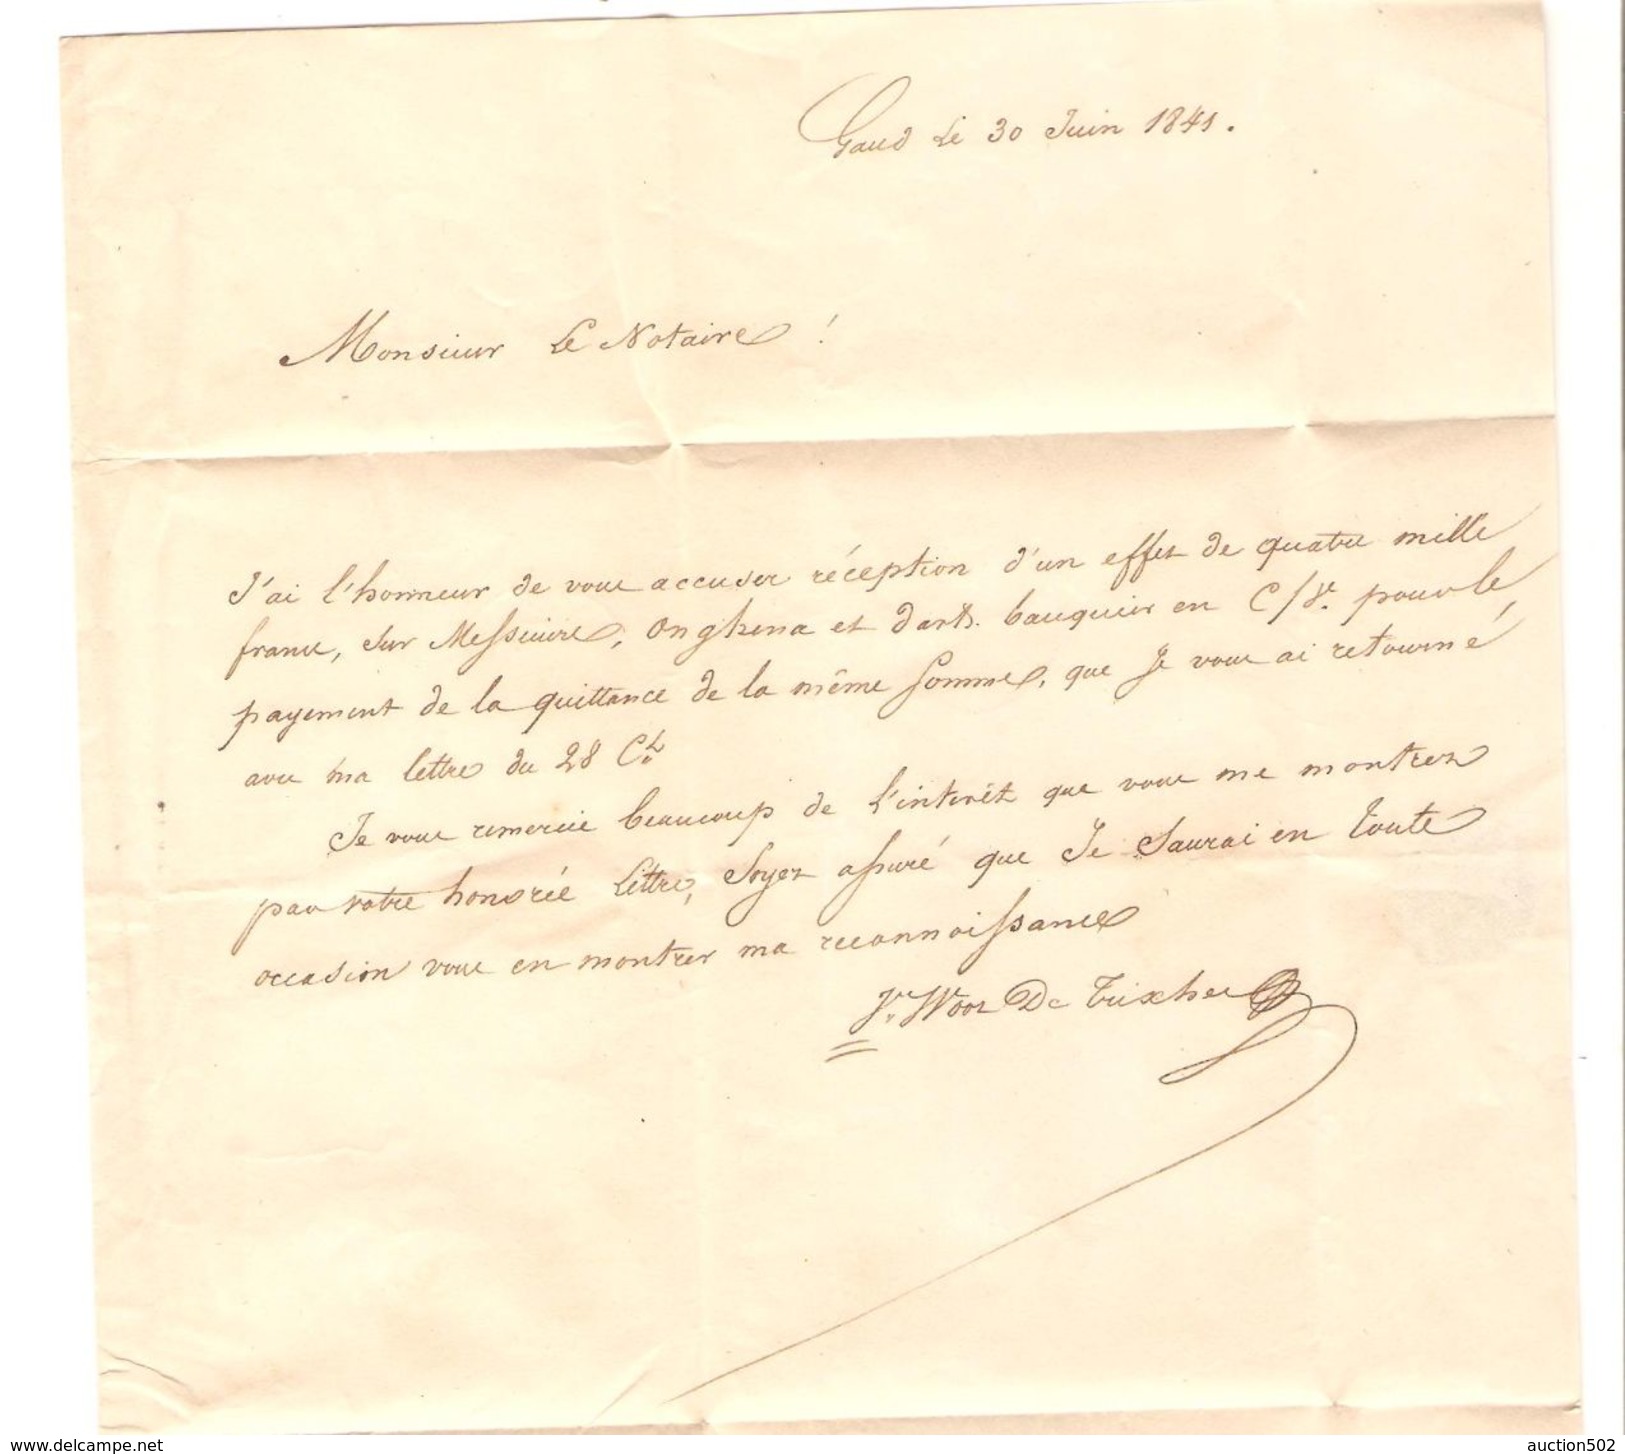 Gand Le 30 Juin 1841.
Monsieur Le Notaire !
J'ai l'honneur de vous accuser réception d'un effet de quatre mille
francs, sur Messieurs, Onghena et banquier en C/ pour le
payement de la quittance de la même somme, que Je vous ai retourné
avec ma lettre du 28 Ct
Je vous remercie beaucoup de L'interêt que vous me montrez
par votre honorée Lettre, Soyez assuré que Je Saurai en toute
occasion vous en montrer ma reconnoissance
De
www.delcampe.net
auction502